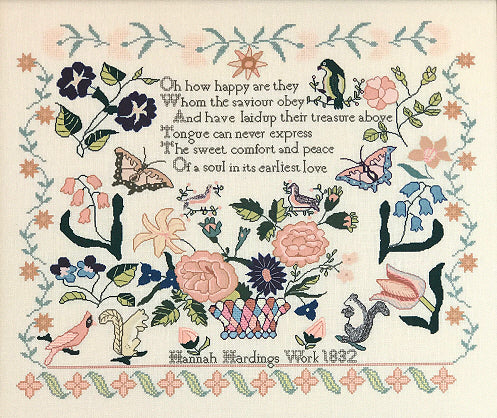 Oh how happy are they
Whom the saviour obey
And have laidup their treasure above
Tongue can never express
The sweet comfort and peace
Of a soul in its earliest love
Hannah Hardings Work 1832